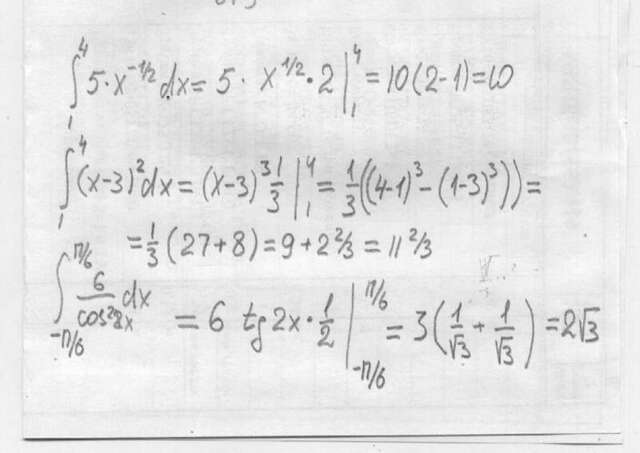 ∫₁⁴ 5·x^(-1/2) dx = 5· x^(1/2)·2 |₁⁴ = 10(2-1)=10
∫₁⁴ (x-3)² dx = (x-3)³ 1/3 |₁⁴ = 1/3((4-1)³-(1-3)³)) =
= 1/3 (27+8) = 9+2 2/3 = 11 2/3
∫_(-π/6)^(π/6) 6/(cos²2x) dx = 6 tg 2x · 1/2 |_(-π/6)^(π/6) = 3(1/√3 + 1/√3) = 2√3